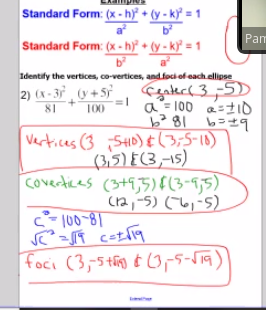 Examples
Standard Form: (x - h)² + (y - k)² = 1
a² b²
Standard Form: (x - h)² + (y - k)² = 1
b² a²
Identify the vertices, co-vertices, and foci of each ellipse
center (3, -5)
2) (x - 3)²/81 + (y + 5)²/100 = 1
a² = 100 a = ±10
b² 81 b = ±9
Vertices (3, -5+10) & (3, -5-10)
(3, 5) & (3, -15)
Covertices (3+9, 5) & (3-9, 5)
(12, -5) (-6, -5)
c² = 100-81
√c² = √19 c = ±√19
foci (3, -5+√19) & (3, -5-√19)
Pam